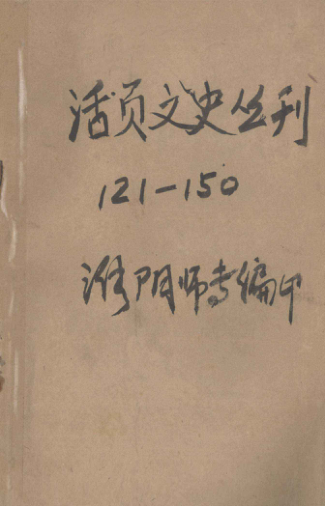 活页文史丛刊
121-150
淮阴师专编印